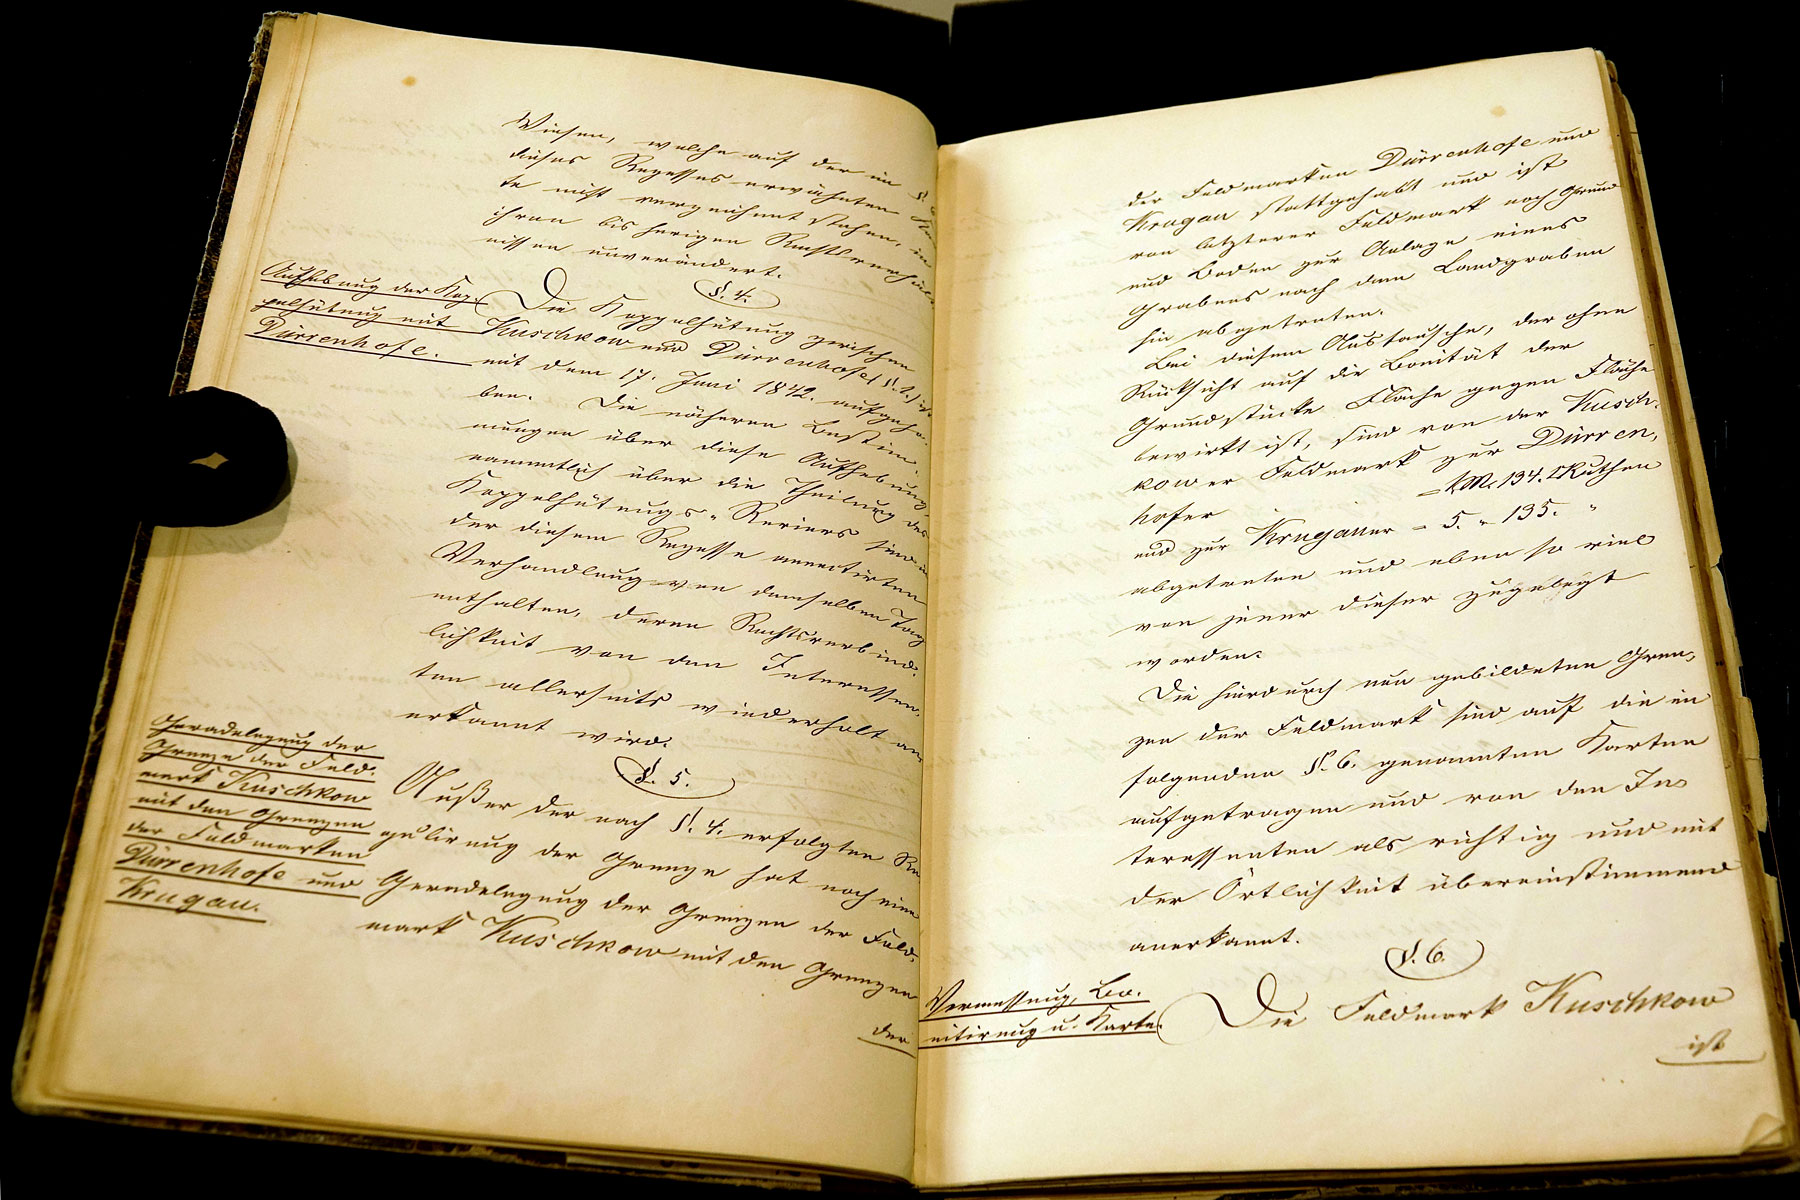 Wiesen, welche auf der im §. 6.
dieses Rezesses erwähnten Kar-
te nicht verzeichnet stehen, in
ihren bisherigen Rechtsverhält-
nissen unverändert.
§. 4.
Aufhebung der Kop-
pelhütung mit
Dürrenhofe.
Die Koppelhütung zwischen
Kuschkow und Dürrenhofe (§. 1.) ist
mit dem 17. Juni 1842. aufgeho-
ben. Die näheren Bestim-
mungen über diese Aufhebung,
namentlich über die Theilung des
Koppelhütungs-Reviers sind in
der diesem Rezesse annectirten
Verhandlung von demselben Tage
enthalten, deren Rechtsverbind-
lichkeit von den Interessen-
ten allerseits wiederholt an-
erkannt wird.
§. 5.
Geradelegung der
Grenze der Feld-
mark Kuschkow
mit den Grenzen
der Feldmarken
Dürrenhofe und
Krugau.
Außer der nach §. 4. erfolgten Re-
gulirung der Grenze hat noch eine
Geradelegung der Grenzen der Feld-
mark Kuschkow mit den Grenzen
der
der Feldmarken Dürrenhofe und
Krugau stattgehabt und ist
von letzterer Feldmark noch Grund
und Boden zur Anlage eines
Grabens nach dem Landgraben
hin abgetreten.
Bei diesem Austausche, der ohne
Rücksicht auf die Bonität der
Grundstücke Fläche gegen Fläche
bewirkt ist, sind von der Kusch-
kower Feldmark zur Dürren-
hofer = 134. □Ruthen
und zur Krugauer = 5. " 135. "
abgetreten und eben so viel
von jener dieser zugelegt
worden.
Die hierdurch neu gebildeten Gren-
zen der Feldmark sind auf die im
folgenden §. 6. genannten Karten
aufgetragen und von den In-
teressenten als richtig und mit
der Örtlichkeit übereinstimmend
anerkannt.
§. 6.
Vermessung, Bo-
nitirung u. Karte.
Die Feldmark Kuschkow
ist